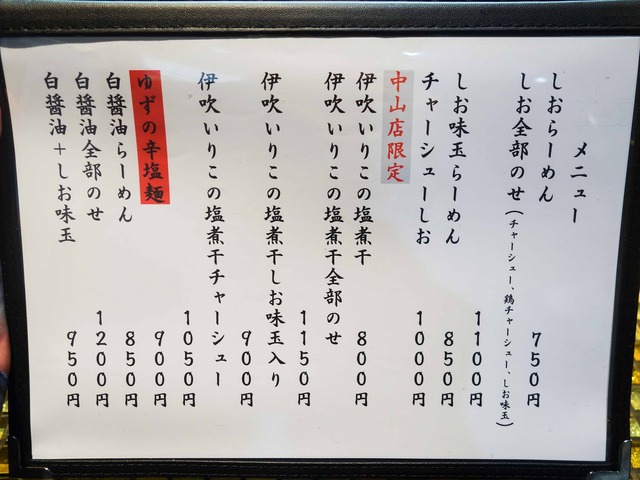 メニュー
しおらーめん 750円
しお全部のせ(チャーシュー、鶏チャーシュー、しお味玉) 1100円
しお味玉らーめん 850円
チャーシューしお 1000円
中山店限定
伊吹いりこの塩煮干 800円
伊吹いりこの塩煮干全部のせ 1150円
伊吹いりこの塩煮干しお味玉入り 900円
伊吹いりこの塩煮干チャーシュー 1050円
ゆずの辛塩麺 900円
白醤油らーめん 850円
白醤油全部のせ 1200円
白醤油+しお味玉 950円